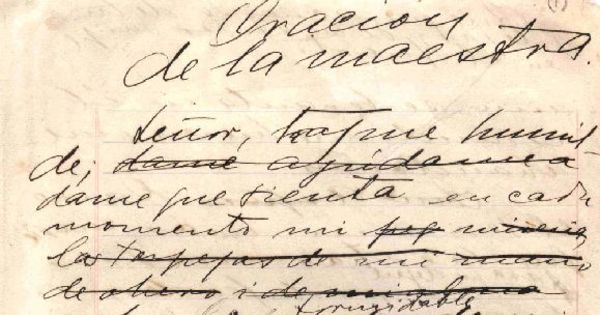 Oracion
de la maestra.
Señor, hazme humil
de; dame ayúdame a
dame que sienta en cada
momento mi peq miseria,
las torpezas de mi mano
de obrero i de mi alma